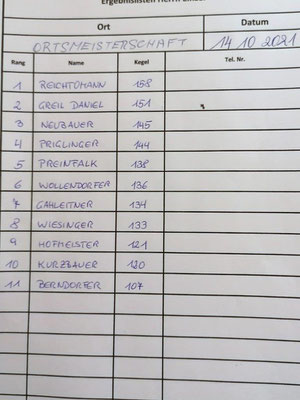 Ergebnislisten Herrn
Ort Datum
ORTSMEISTERSCHAFT 14 10 2021
Rang Name Kegel Tel. Nr.
1 REICHTOMANN 158
2 GREIL DANIEL 151
3 NEUBAUER 145
4 PRIGLINGER 144
5 PREINFALK 138
6 WOLLENDORFER 136
7 GAHLEITNER 134
8 WIESINGER 133
9 HOFMEISTER 121
10 KURZBAUER 120
11 BERNDORFER 107